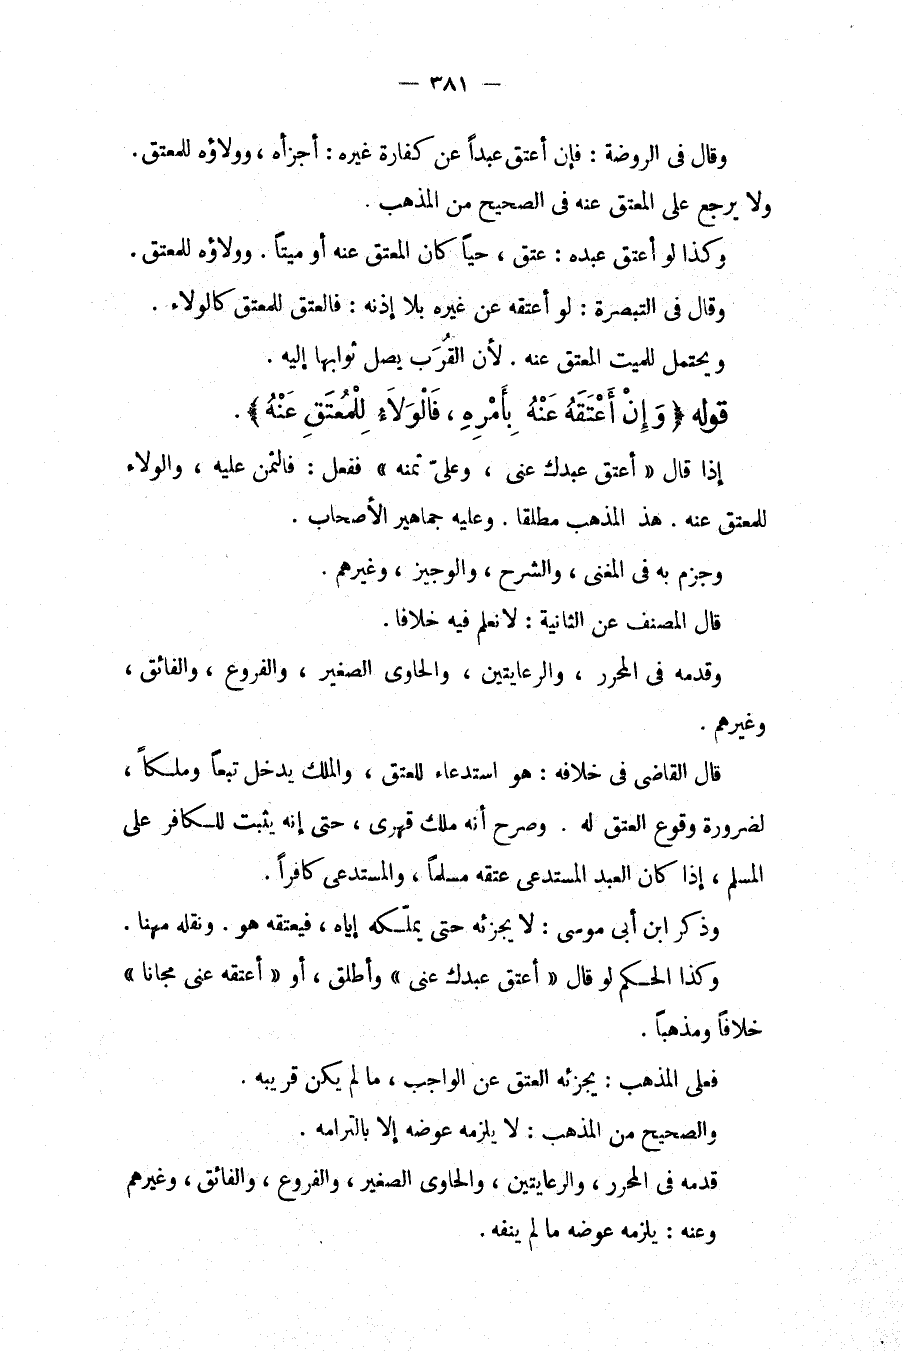 — ٣٨١ —
وقال فى الروضة : فإن أعتق عبداً عن كفارة غيره : أجزأه ، وولاؤه للمعتق .
ولا يرجع على المعتق عنه فى الصحيح من المذهب .
وكذا لو أعتق عبده : عتق ، حياً كان المعتق عنه أو ميتاً . وولاؤه للمعتق .
وقال فى التبصرة : لو أعتقه عن غيره بلا إذنه : فالعتق للمعتق كالولاء .
ويحتمل للميت المعتق عنه . لأن القُرَب يصل ثوابها إليه .
قوله ﴿ وَإِنْ أَعْتَقَهُ عَنْهُ بِأَمْرِهِ ، فَالْوَلَاَءِ لِلْمُعْتَقِ عَنْهُ ﴾ .
إذا قال « أعتق عبدك عنى ، وعلىّ ثمنه » ففعل : فالثمن عليه ، والولاء
للمعتق عنه . هذ المذهب مطلقا . وعليه جماهير الأصحاب .
وجزم به فى المغنى ، والشرح ، والوجيز ، وغيرهم .
قال المصنف عن الثانية : لا نعلم فيه خلافا .
وقدمه فى المحرر ، والرعايتين ، والحاوى الصغير ، والفروع ، والفائق ،
وغيرهم .
قال القاضى فى خلافه : هو استدعاء للعتق ، والملك يدخل تبعاً وملكاً ،
لضرورة وقوع العتق له . وصرح أنه ملك قهرى ، حتى إنه يثبت للكافر على
المسلم ، إذا كان العبد المستدعى عتقه مسلماً ، والمستدعى كافراً .
وذكر ابن أبى موسى : لا يجزئه حتى يملّكه إياه ، فيعتقه هو . ونقله مهنا .
وكذا الحكم لو قال « أعتق عبدك عنى » وأطلق ، أو « أعتقه عنى مجانا »
خلافاً ومذهباً .
فعلى المذهب : يجزئه العتق عن الواجب ، ما لم يكن قريبه .
والصحيح من المذهب : لا يلزمه عوضه إلا بالتزامه .
قدمه فى المحرر ، والرعايتين ، والحاوى الصغير ، والفروع ، والفائق ، وغيرهم
وعنه : يلزمه عوضه ما لم ينفه .